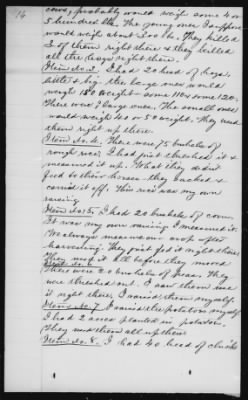 14
cows, probably would weigh some 4 or
5 hundred lbs. The young ones I suppose
would weigh about 200 lbs. They killed
2 of them right there & they killed
all the hogs right there.
Item No. 3. I had 20 head of hogs,
little & big. The large ones would
weigh 150 weight - some 110 & some 120.
There were large ones. The small ones
would weigh 40 or 50 weight. They used
them right up there.
Item No. 4. There were 15 bushels of
rough rice. I had just threshed it &
measured it up. What they didn't
feed to their horses they backed &
carried it off. This rice was my own
raising.
Item No. 5. I had 20 bushels of corn.
It was my own raising. I measured it.
We always measure our crop after
harvesting. They just fed it right there.
They used it all before they moved.
Item No. 6
There were 20 bushels of peas. They
were threshed out. I saw them use
it right there. I raised them myself.
Item No. 7. I raised the potatoes myself.
I had 2 acres planted in potatoes.
They used them all up there.
Item No. 8. I had 40 head of chickens